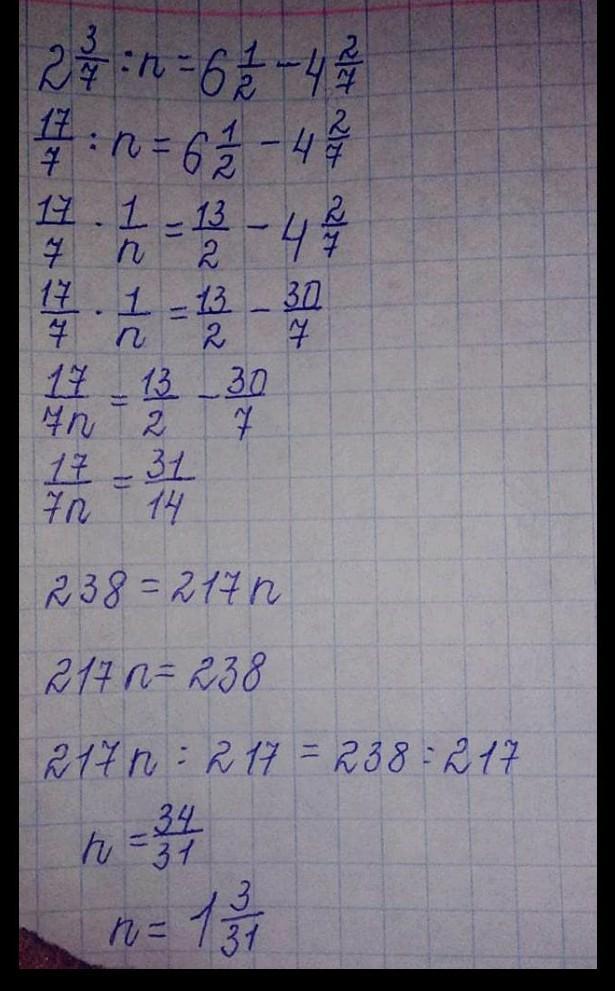 2 3/7 : n = 6 1/2 - 4 2/7
17/7 : n = 6 1/2 - 4 2/7
17/7 · 1/n = 13/2 - 4 2/7
17/7 · 1/n = 13/2 - 30/7
17/7n = 13/2 - 30/7
17/7n = 31/14
238 = 217n
217n = 238
217n : 217 = 238 : 217
n = 34/31
n = 1 3/31